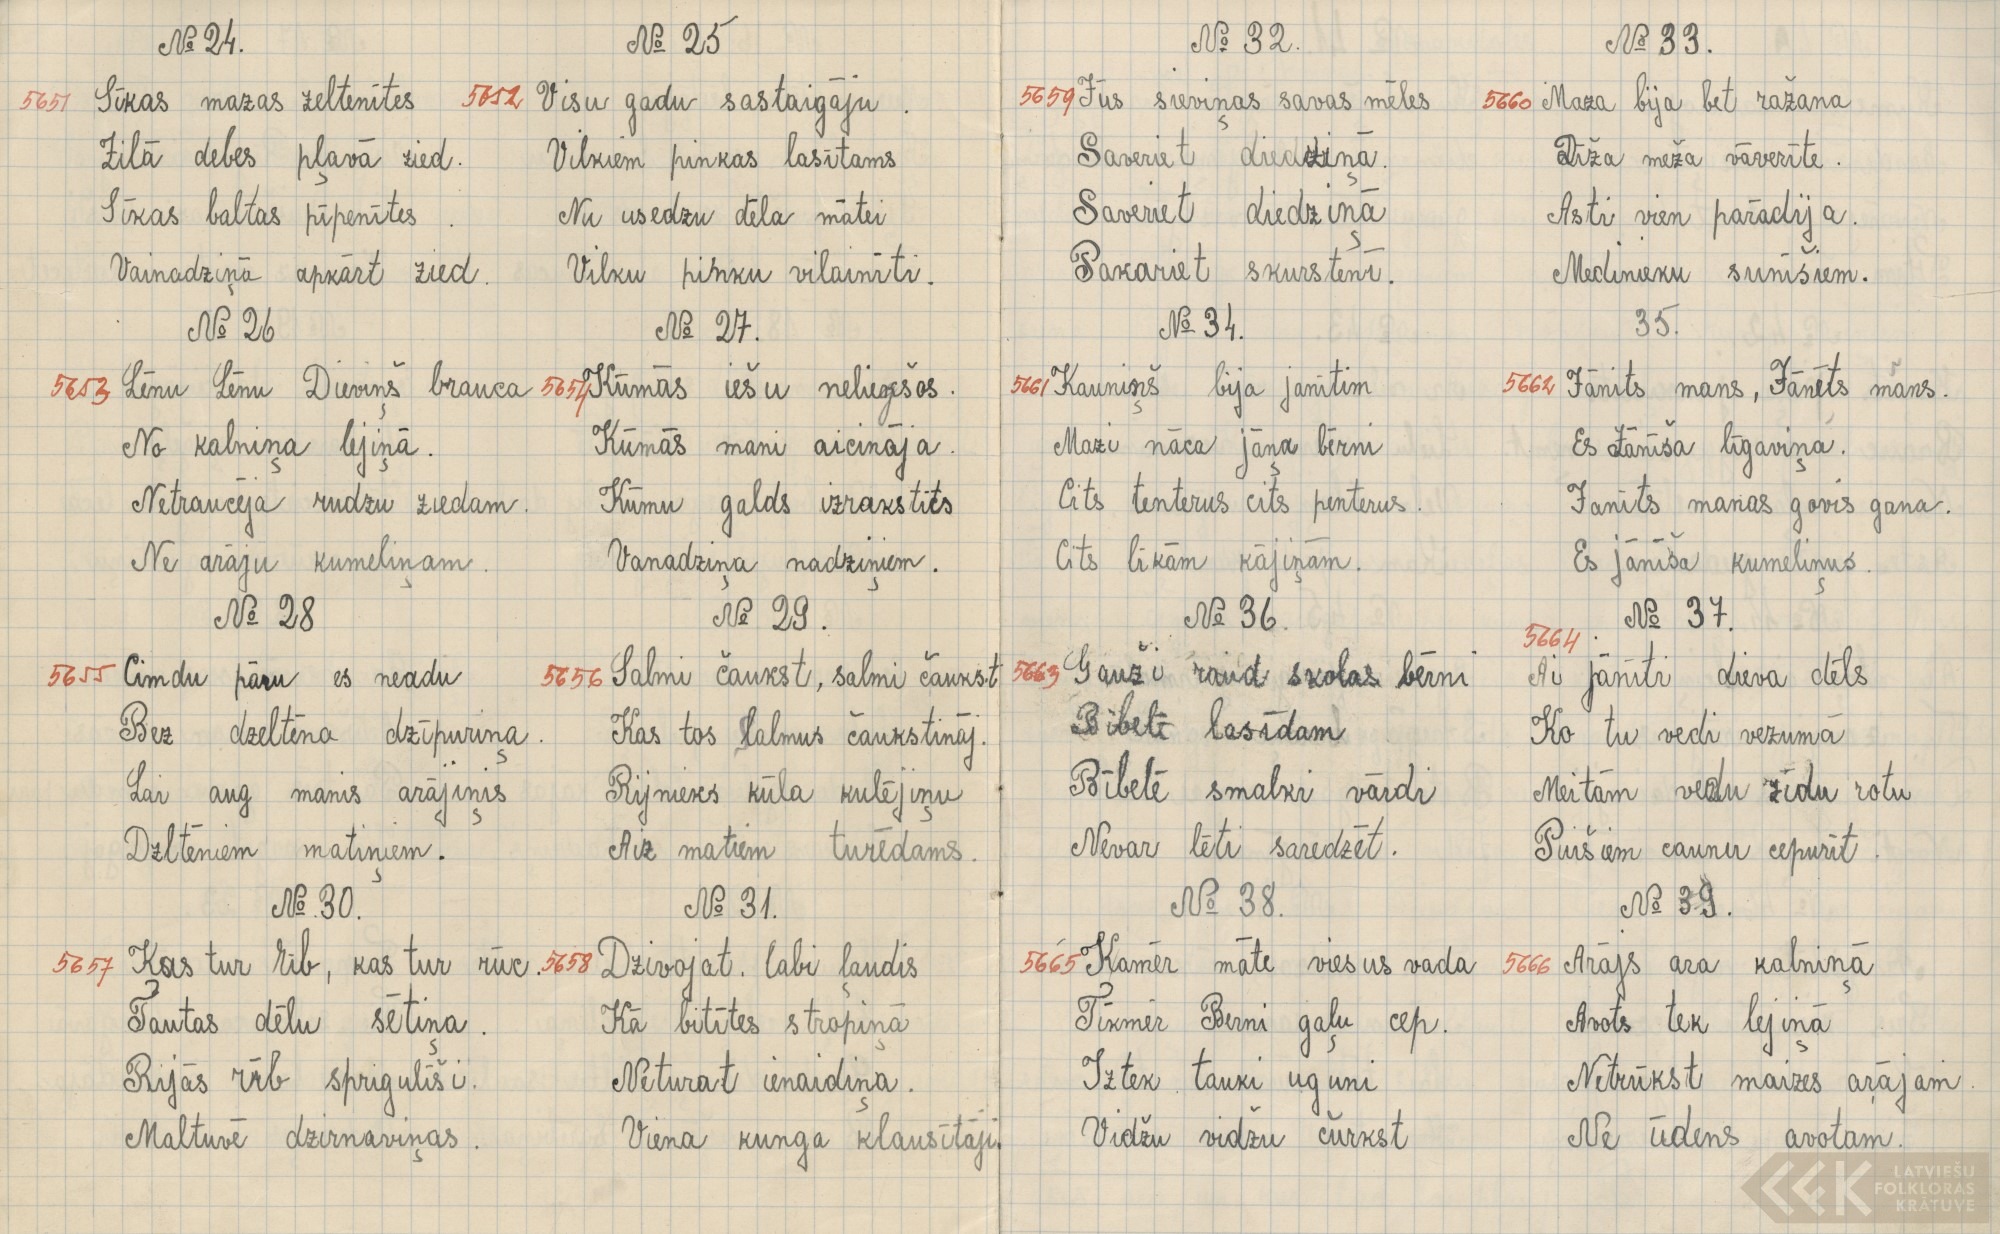 № 24.
5651 Sīkas mazas zeltenītes
Zilā debes pļavā zied.
Sīkas baltas pīpenītes.
Vainadziņā apkārt zied.
№ 25
5652 Visu gadu sastaigāju.
Vilkiem pinkas lasītams
Nu usedzu dēla mātei
Vilku pinku vilainīti.
№ 26
5653 Lēnu Lēnu Dieviņš brauca
No kalniņa lejiņā.
Netraucēja rudzu ziedam.
Ne arāju kumeliņam.
№ 27.
5654 Kūmās iešu neliegšos.
Kūmās mani aicināja.
Kūmu galds izrakstits
Vanadziņa nadziņiem.
№ 28
5655 Cimdu pāru es neadu
Bez dzeltēna dzīpuriņa.
Lai aug manis arājiņis
Dzltēniem matiņiem.
№ 29.
5656 Salmi čaukst, salmi čaukst
Kas tos salmus čaukstināj.
Rijnieks kūla kulējiņu
Aiz matiem turēdams.
№ 30.
5657 Kas tur rīb, kas tur rūc.
Tautas dēlu sētiņa.
Rijās rīb spriguliši.
Maltuvē dzirnaviņas.
№ 31.
5658 Dzivojat. labi ļaudis
Kā bitītes stropiņā
Neturat ienaidiņa.
Viena kunga klausītāji.
№ 32.
5659 Jūs sieviņas savas mēles
Saveriet diedziņā.
Saveriet diedziņā
Pakariet skurstenī.
№ 33.
5660 Maza bija bet ražana
Dīža meža vāverīte.
Asti vien parādija.
Medinieku sunīšiem.
№ 34.
5661 Kauniņš bija janītim
Mazi nāca jāņa bērni
Cits tenterus cits penterus.
Cits līkām kājiņām.
35.
5662 Jānits mans, Jānēts mans.
Es Jānīša līgaviņa.
Janīts manas govis gana.
Es jānīša kumeliņus.
№ 36.
5663 Gauži raud skolas bērni
Bibelē lasīdam
Bībelē smalki vārdi
Nevar lēti saredzēt.
№ 37.
5664. Ai jānīti dieva dēls
Ko tu vedi vezumā
Meitām vedu zīdu rotu
Puišiem caunu cepurīt.
№ 38.
5665 Kamēr māte viesus vada
Tīkmēr Berni gaļu cep.
Iztek tauki uguni
Vidžu vidžu čurkst
№ 39.
5666 Arājs ara kalniņā
Avots tek lejiņā
Netrūkst maizes arājam.
Ne ūdens avotam.
LATVIEŠU
FOLKLORAS
KRĀTUVE